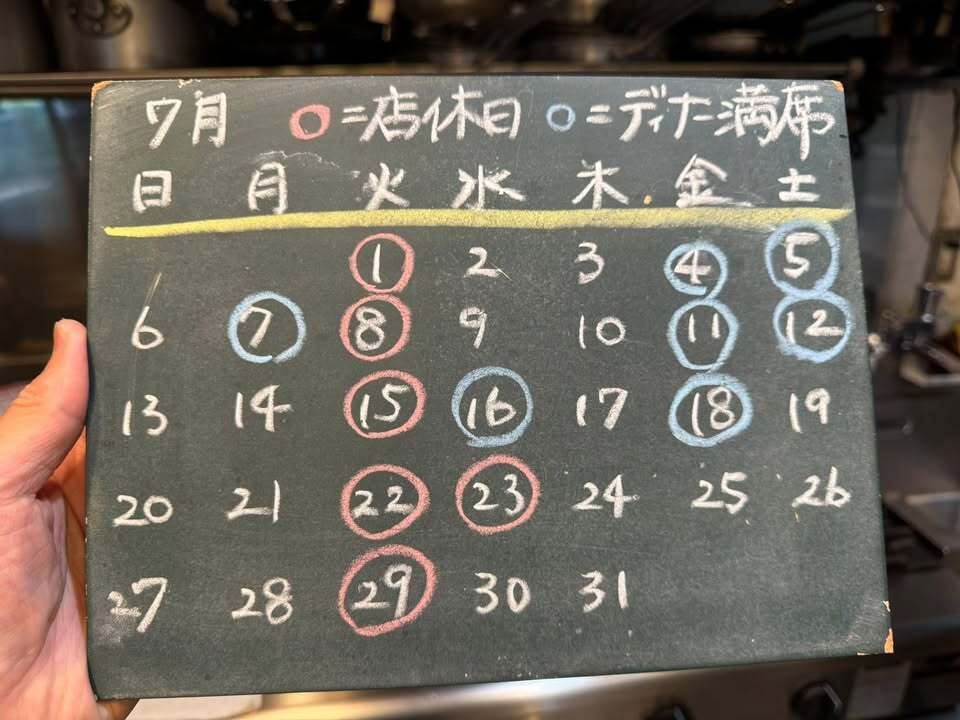 7月 ○=店休日 ○=ディナー満席
日 月 火 水 木 金 土
1 2 3 4 5
6 7 8 9 10 11 12
13 14 15 16 17 18 19
20 21 22 23 24 25 26
27 28 29 30 31